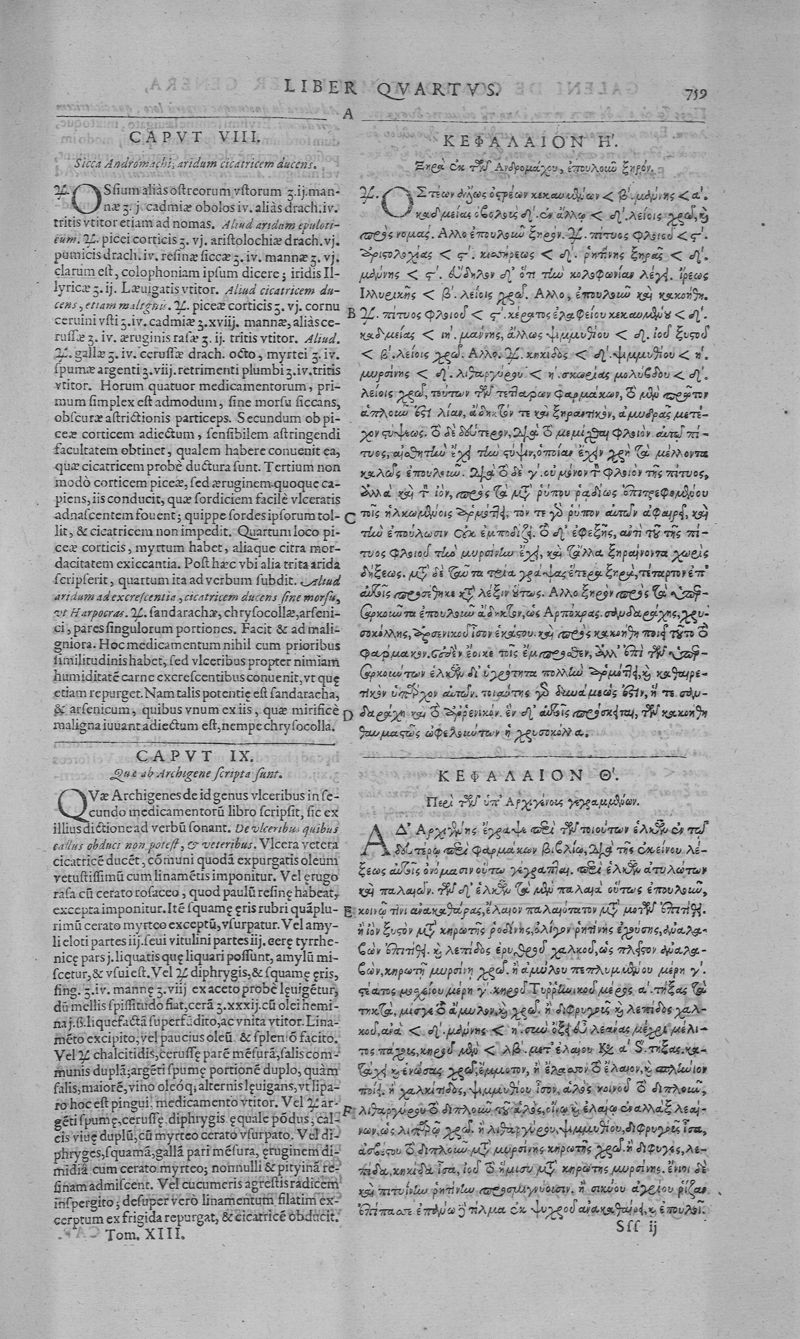 LIBER QVARTVS.
759
A
CAPVT VIII.
Sicca Andromachi, aridum cicatricem ducens.
♃. OSsium aliàs ostreorum vstorum ʒ. ij. man-
næ ʒ. j. cadmiæ obolos iv. aliàs drach. iv.
tritis vtitor etiam ad nomas. Aliud aridum epulori-
cum. ♃. picei corticis ʒ. vj. aristolochiæ drach. vj.
pumicis drach. iv. resinæ siccæ ʒ. iv. mannæ ʒ. vj.
clarum est, colophoniam ipsum dicere; iridis Il-
lyricæ ʒ. ij. Læuigatis vtitor. Aliud cicatricem du-
cens, etiam malignis. ♃. piceæ corticis ʒ. vj. cornu
ceruini vsti ʒ. iv. cadmiæ ʒ. xviij. mannæ, aliàs ce-
russæ ʒ. iv. æruginis rasæ ʒ. ij. tritis vtitor. Aliud.
♃. gallæ ʒ. iv. cerussæ drach. octo, myrtei ʒ. iv.
spumæ argenti ʒ. viij. retrimenti plumbi ʒ. iv. tritis
vtitor. Horum quatuor medicamentorum, pri-
mum simplex est admodum, sine morsu siccans,
obscuræ astrictionis particeps. Secundum ob pi-
ceæ corticem adiectum, sensibilem astringendi
facultatem obtinet, qualem habere conuenit ea,
quæ cicatricem probè ductura sunt. Tertium non
modò corticem piceæ, sed æruginem quoque ca-
piens, iis conducit, quæ sordiciem facilè vlceratis
adnascentem fouent; quippe sordes ipsorum tol-
lit, & cicatricem non impedit. Quartum loco pi-
ceæ corticis, myrtum habet, aliaque citra mor-
dacitatem exiccantia. Post hæc vbi alia trita arida
scripserit, quartum ita ad verbum subdit. Aliud
aridum ad excrescentia, cicatricem ducens sine morsu,
vt Harpocras. ♃. sandarachæ, chrysocollæ, arseni-
ci, pares singulorum portiones. Facit & ad mali-
gniora. Hoc medicamentum nihil cum prioribus
similitudinis habet, sed vlceribus propter nimiam
humiditatem carne excrescentibus conuenit, vt quę
etiam repurget. Nam talis potentię est sandaracha,
& arsenicum, quibus vnum ex iis, quæ mirificè
maligna iuuant adiectum est, nempe chrysocolla.
CAPVT IX.
Quæ ab Archigene scripta sunt.
QVæ Archigenes de id genus vlceribus in se-
cundo medicamentorũ libro scripsit, sic ex
illius dictione ad verbũ sonant. De vlceribus quibus
callus obduci non potest, & veteribus. Vlcera vetera
cicatricẽ ducẽt, cõmuni quodã expurgatis oleum
vetustissimũ cum linamẽtis imponitur. Vel ęrugo
rasa cũ cerato rosaceo, quod paulũ resinę habeat,
excepta imponitur. Itẽ squamę ęris rubri quãplu-
rimũ cerato myrteo exceptũ, vsurpatur. Vel amy-
li eloti partes iij. seui vitulini partes iij. cerę tyrrhe-
nicę pars j. liquatis quę liquari possunt, amylũ mi-
scetur, & vsui est. Vel ♃ diphrygis, & squamę ęris,
sing. ʒ. iv. mannę ʒ. viij ex aceto probè lęuigẽtur,
dũ mellis spissitudo fiat, cerã ʒ. xxxij. cũ olei hemi-
na j. ß. liquefactã superfũdito, ac vnita vtitor. Lina-
mẽto excipito, vel paucius oleũ & spleniõ facito.
Vel ♃ chalcitidis, cerussę parẽ mẽsurã, salis com-
munis duplũ; argẽti spumę portionẽ duplo, quàm
salis, maiorẽ, vino oleóq; alternis lęuigans, vt lipa-
ro hoc est pingui medicamento vtitor. Vel ♃ ar-
gẽti spumę, cerussę diphrygis ęquale põdus; cal-
cis viuę duplũ, cũ myrteo cerato vsurpato. Vel di-
phryges, squamã, gallã pari mẽsura, ęruginem di-
midiã cum cerato myrteo; nonnulli & pityinã re-
sinam admiscent. Vel cucumeris agrestis radicem
inspergito; desuper verò linamentum filatim ex-
cerptum ex frigida repurgat, & cicatricẽ obducit.
Tom. XIII.
ΚΕΦΑΛΑΙΟΝ Η′.
Ξηρὰ ἐκ τῶν Ἀνδρομάχου, ἐπουλοῦν ξηρόν.
♃. ΟΣτέων ἄλλως ὀστρέων κεκαυμένων < β′. μάννης < α′.
καδμείας ὀβολοὺς δ′. ἐν ἄλλῳ < δ′. λείοις χρῶ, καὶ
πρὸς νομάς. Ἄλλο ἐπουλοῦν ξηρόν. ♃. πίτυος φλοιοῦ < ϛ′.
ἀριστολοχίας < ϛ′. κισσήρεως < δ′. ῥητίνης ξηρᾶς < δ′.
μάννης < ϛ′. εὔδηλον δ′ ὅτι τὴν κολοφωνίαν λέγει. ἴρεως
Ἰλλυρικῆς < β′. λείοις χρῶ. Ἄλλο, ἐπουλοῦν καὶ κακοήθη.
B ♃. πίτυος φλοιοῦ < ϛ′. κέρατος ἐλαφείου κεκαυμένου < δ′.
καδμείας < ιη′. μάννης, ἄλλως ψιμμυθίου < δ′. ἰοῦ ξυστοῦ
< β′. λείοις χρῶ. Ἄλλο. ♃. κηκῖδος < δ′. ψιμμυθίου < η′.
μυρσίνης < δ′. λιθαργύρου < η′. σκωρίας μολύβδου < δ′.
λείοις χρῶ, τούτων τῶν τεττάρων φαρμάκων, τὸ μὲν πρῶτον
ἁπλοῦν ἐστὶ λίαν, ἄδηκτόν τε καὶ ξηραντικὸν, ἀμυδρᾶς μετέ-
χον στύψεως. τὸ δὲ δεύτερον, διὰ τὸ μεμίχθαι φλοιὸν αὐτῷ πί-
τυος, αἰσθητὴν ἔχει τὴν στύψιν, ὁποίαν ἔχειν χρὴ τὰ μέλλοντα
καλῶς ἐπουλοῦν. διὰ τὸ δὲ γ′. οὐ μόνον τὸν φλοιὸν τῆς πίτυος,
ἀλλὰ καὶ τὸν ἰὸν, πρὸς τὰ μετὰ ῥύπου ῥᾳδίως ἐπιτρεφομένου
C τοῖς ἡλκωμένοις ἁρμόττει, τόν τε γὰρ ῥύπον αὐτῶν ἀφαιρεῖ, καὶ
τὴν ἐπούλωσιν οὐκ ἐμποδίζει. τὸ δ′ ἐφεξῆς, ἀντὶ τοῦ τῆς πί-
τυος φλοιοῦ τὴν μυρσίνην ἔχει, καὶ τἄλλα ξηραίνοντα χωρὶς
δήξεως. μετὰ δὲ ταῦτα τρία γράψας ἕτερα ξηρὰ, τέταρτον ἐπ′
αὐτοῖς προσέθηκε κατὰ λέξιν οὕτως. Ἄλλο ξηρὸν πρὸς τὰ ὑπερ-
σαρκοῦντα ἐπουλοῦν ἄδηκτον, ὡς Ἁρπόκρας. σανδαράχης, χρυ-
σοκόλλης, ἀρσενικοῦ ἴσον ἑκάστου. καὶ πρὸς κακοήθη ποιεῖ τοῦτο τὸ
φάρμακον. οὐδὲν ἔοικε τοῖς ἔμπροσθεν, ἀλλ′ ἐπὶ τῶν ὑπερ-
σαρκούντων ἑλκῶν δι′ ὑγρότητα πολλὴν ἁρμόττει, καὶ καθαιρε-
τικὸν ὑπάρχον αὐτῶν. τοιαύτης γὰρ δυνάμεώς ἐστιν, ἥ τε σαν-
D δαράχη καὶ τὸ ἀρσενικόν. ἓν δ′ αὐτοῖς πρόσκειται, τῶν κακοήθη
θαυμαστῶς ὠφελούντων ἡ χρυσοκόλλα.
ΚΕΦΑΛΑΙΟΝ Θ′.
Περὶ τῶν ὑπ′ Ἀρχιγένους γεγραμμένων.
Α Δ′ Ἀρχιγένης ἔγραψε περὶ τῶν τοιούτων ἑλκῶν ἐν τῷ
δευτέρῳ περὶ φαρμάκων βιβλίῳ, διὰ τῆς ἐκείνου λέ-
ξεως αὐτοῖς ὀνόμασιν οὕτω γέγραπται. περὶ ἑλκῶν ἀτυλώτων
καὶ παλαιῶν. τῶν δ′ ἑλκῶν τὰ μὲν παλαιὰ οὕτως ἐπουλοῦν,
E κοινῷ τινι ἀνακαθάρας, ἔλαιον παλαιότατον μετὰ μοτῶν ἐπιτίθει.
ἢ ἰὸν ξυστὸν μετὰ κηρωτῆς ῥοδίνης, ὀλίγον ῥητίνης ἐχούσης, ἀναλα-
βὼν ἐπιτίθει. καὶ λεπίδος ἐρυθροῦ χαλκοῦ, ὡς πλεῖστον ἀναλα-
βὼν, κηρωτῇ μυρσίνῃ χρῶ. ἢ ἀμύλου πεπλυμένου μέρη γ′.
στέατος μοσχείου μέρη γ′. κηροῦ Τυῤῥηνικοῦ μέρος α′. τήξας τὰ
τηκτὰ, μίσγε τὸ ἄμυλον, καὶ χρῶ. ἢ διφρυγοῦς καὶ λεπίδος χαλ-
κοῦ, ἀνὰ < δ′. μάννης < η′. σὺν ὄξει εὖ λεάνας μέχρι μέλι-
τος πάχους, κηροῦ μὲν < λβ′. μετ′ ἐλαίου
ποίει. ἢ χαλκίτιδος, ψιμμυθίου ἴσον, ἁλὸς κοινοῦ τὸ διπλοῦν,
F λιθαργύρου τὸ διπλοῦν τοῦ ἁλὸς, οἴνῳ καὶ ἐλαίῳ ἐναλλὰξ λεαί-
νων, ὡς λιπαρῷ χρῶ. ἢ λιθαργύρου, ψιμμυθίου, διφρυγοῦς ἴσα,
ἀσβέστου τὸ διπλοῦν μετὰ μυρσίνης κηρωτῆς χρῶ. ἢ διφρυγὲς, λε-
πίδα, κηκῖδα ἴσα, ἰοῦ τὸ ἥμισυ μετὰ κηρωτῆς μυρσίνης. ἔνιοι δὲ
καὶ πιτυΐνην ῥητίνην προσμιγνύουσιν. ἢ σικύου ἀγρίου ῥίζαν
ἐπίπασσε ἐπάνω τίλμα ἐκ ψυχροῦ ἀνακαθαίρει, καὶ ἐπουλοῖ.
Sſſ ij